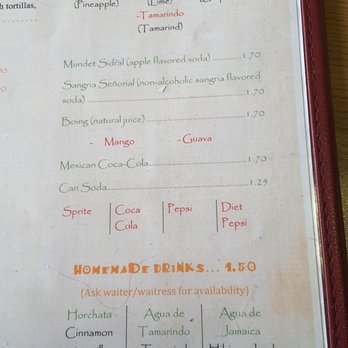 h tortillas,
(Pineapple) (Lime)
-Tamarindo
(Tamarind)
Mundet Sidral (apple flavored soda) ............1.70
Sangria Señorial (non-alcoholic sangria flavored
soda)............................................1.70
Boing (natural juice)............................1.70
- Mango -Guava
Mexican Coca-Cola................................1.70
Can Soda.........................................1.25
Sprite Coca Pepsi Diet
Cola Pepsi
HOMEMADE DRINKS... 1.50
(Ask waiter/waitress for availability)
Horchata Agua de Agua de
Cinnamon Tamarindo Jamaica